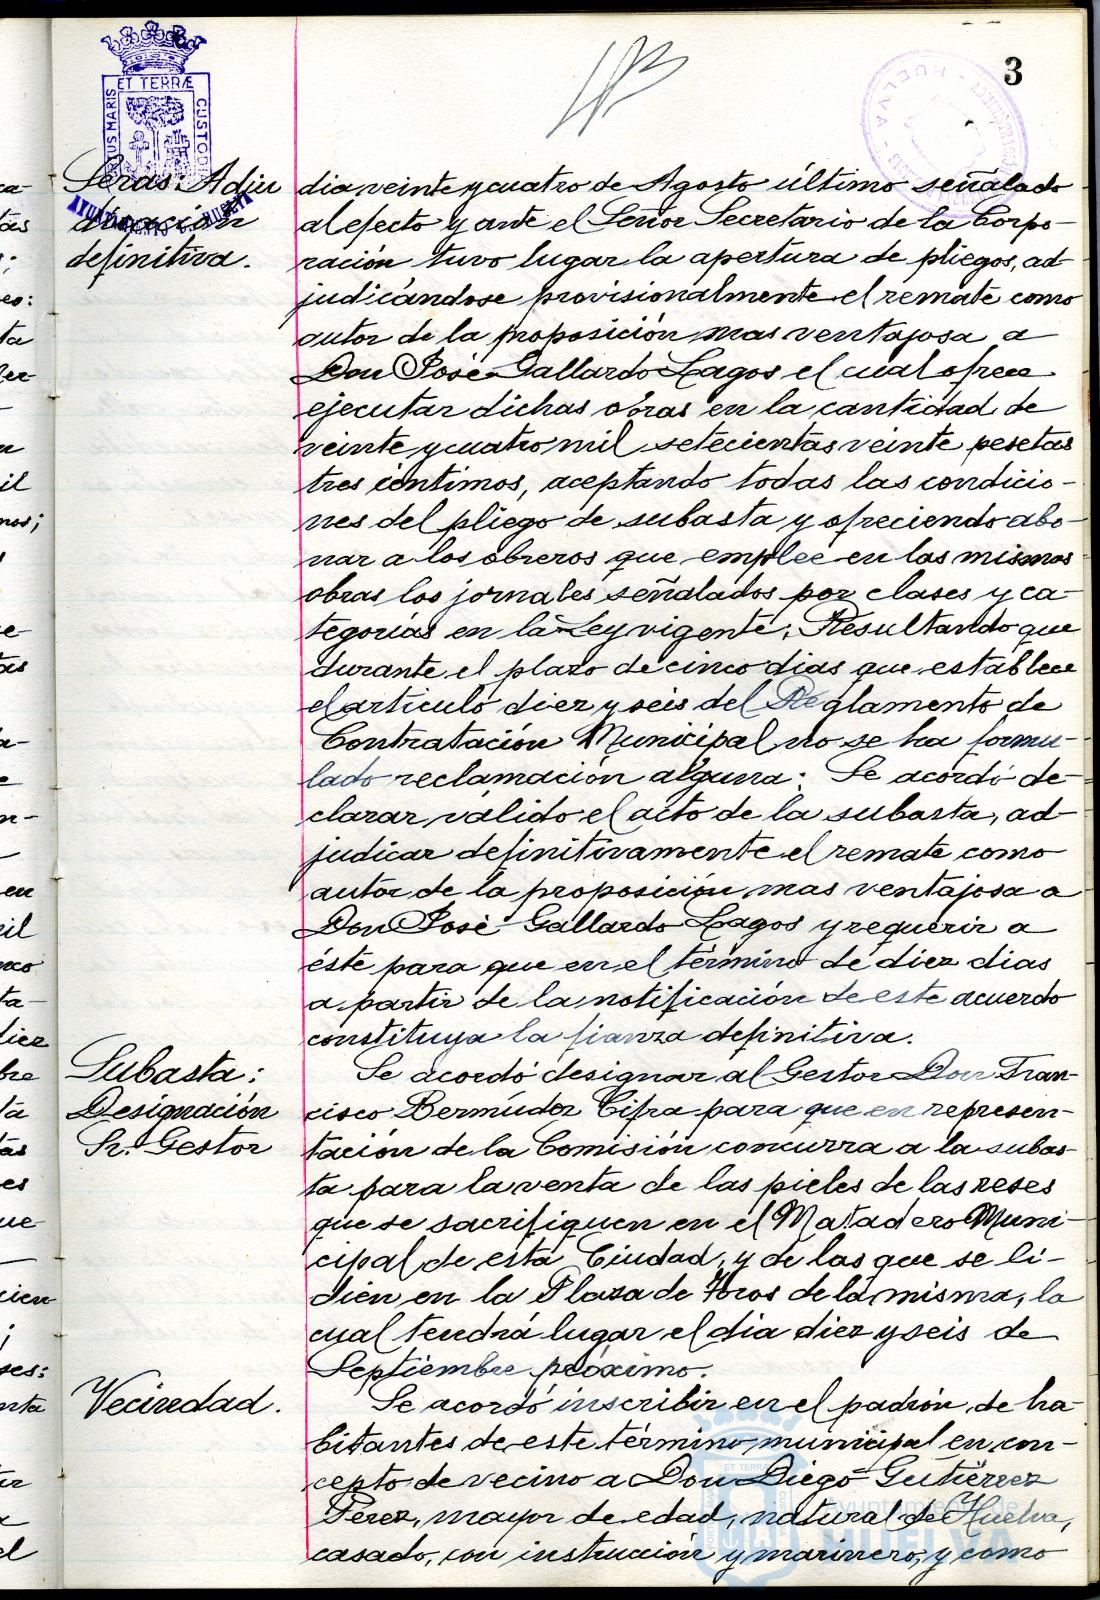 3
PORTUS MARIS ET TERRÆ CUSTODIA
AYUNTAMIENTO DE HUELVA
HUELVA
leras. Adju
dicación
definitiva.
dia veinte y cuatro de Agosto último señalado
al efecto y ante el Señor Secretario de la Corpo-
ración tuvo lugar la apertura de pliegos, ad
judicándose provisionalmente el remate como
autor de la proposición mas ventajosa a
Don José Gallardo Lagos el cual ofrece
ejecutar dichas obras en la cantidad de
veinte y cuatro mil setecientas veinte pesetas
tres céntimos, aceptando todas las condicio-
nes del pliego de subasta y ofreciendo abo-
nar a los obreros que emplee en las mismas
obras los jornales señalados por clases y ca-
tegorías en la Ley vigente; Resultando que
durante el plazo de cinco dias que establece
el articulo diez y seis del Reglamento de
Contratación Municipal no se ha formu-
lado reclamación alguna: Se acordó de-
clarar valido el acto de la subasta, ad-
judicar definitivamente el remate como
autor de la proposición mas ventajosa a
Don José Gallardo Lagos y requerir a
éste para que en el término de diez dias
a partir de la notificación de este acuerdo
constituya la fianza definitiva.
Subasta:
Designación
Sr. Gestor
Se acordó designar al Gestor Don Fran-
cisco Bermúdez Cifra para que en represen-
tación de la Comisión concurra a la subas-
ta para la venta de las pieles de las reses
que se sacrifiquen en el Matadero Muni-
cipal de esta Ciudad, y de las que se li-
dien en la Plaza de Toros de la misma, la
cual tendrá lugar el dia diez y seis de
Septiembre próximo.
Vecindad.
Se acordó inscribir en el padrón de ha-
bitantes de este término municipal en con-
cepto de vecino a Don Diego Gutiérrez
Pérez, mayor de edad, natural de Huelva,
casado, con instrucción y marinero, y como
Ayuntamiento de
HUELVA